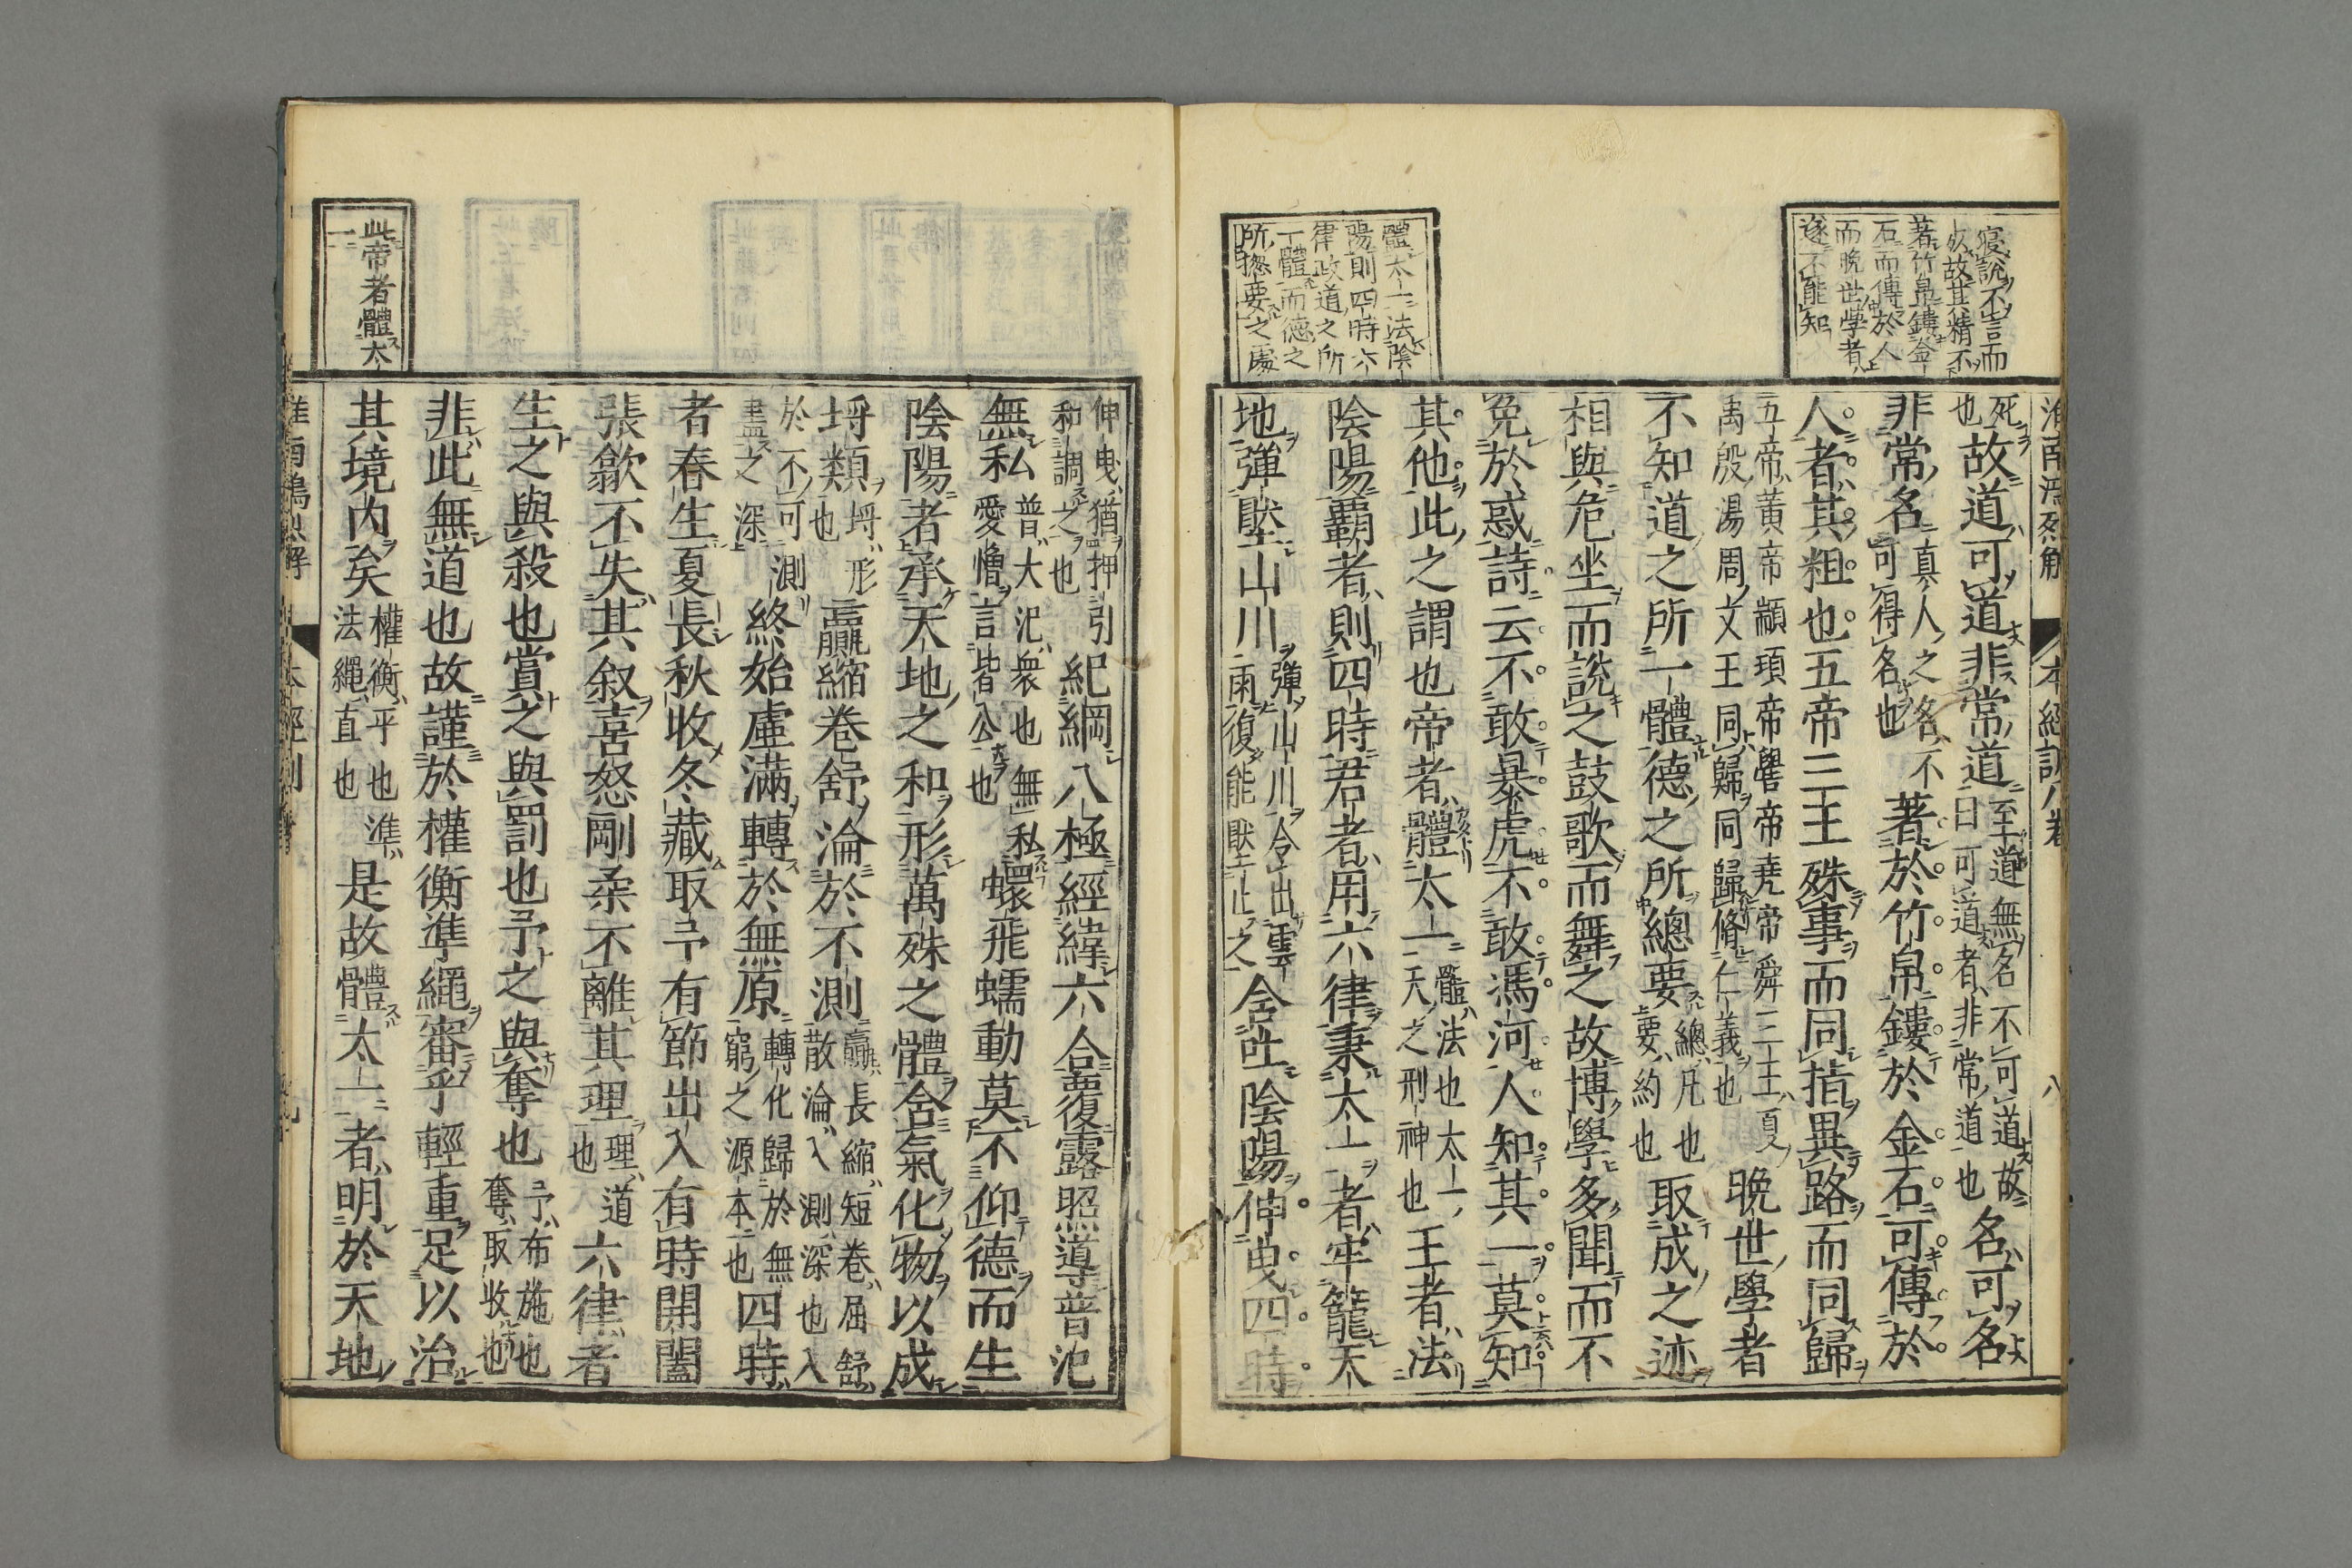 寢說不言而
以故其精不
著竹帛鏤金
石而傳於人
而晚世學者
遂不能知
體太一法陰
陽則四時六
律政道之所
一體而德之
所揔要之處
淮南鴻烈解 本經訓八卷 八
死也故道可道非常道至道無名不可道故曰可道者非常道也名可名
非常名真人之名不可得名也著於竹帛鏤於金石可傳於
人者其粗也五帝三王殊事而同指異路而同歸
五帝黃帝顓頊帝嚳帝堯帝舜三王夏禹殷湯周文王同歸同歸脩仁義也晚世學者
不知道之所一體德之所總要總凡也要約也取成之迹
相與危坐而說之鼓歌而舞之故博學多聞而不
免於惑詩云不敢暴虎不敢馮河人知其一莫知
其他此之謂也帝者體太一體法也太一天之刑神也王者法
陰陽霸者則四時君者用六律秉太一者牢籠天
地彈壓山川彈山川令出雲雨復能壓止之含吐陰陽伸曳四時
伸曳猶押引和調之也紀綱八極經緯六合覆露照導普氾
無私普大氾衆也無私愛憎言皆公也蠉飛蠕動莫不仰德而生
陰陽者承天地之和形萬殊之體含氣化物以成
埒類埒形也贏縮卷舒淪於不測贏長縮短卷屈舒散淪入測深也入
於不可測盡之深終始虛滿轉於無原轉化歸於無窮之源本也四時
者春生夏長秋收冬藏取予有節出入有時開闔
張歙不失其叙喜怒剛柔不離其理理道也六律者
生之與殺也賞之與罰也予之與奪也予布施也奪取收也
非此無道也故謹於權衡準繩審乎輕重足以治
其境內矣權衡平也準法繩直也是故體太一者明於天地
淮南鴻烈解 本經訓
此帝者體太
一